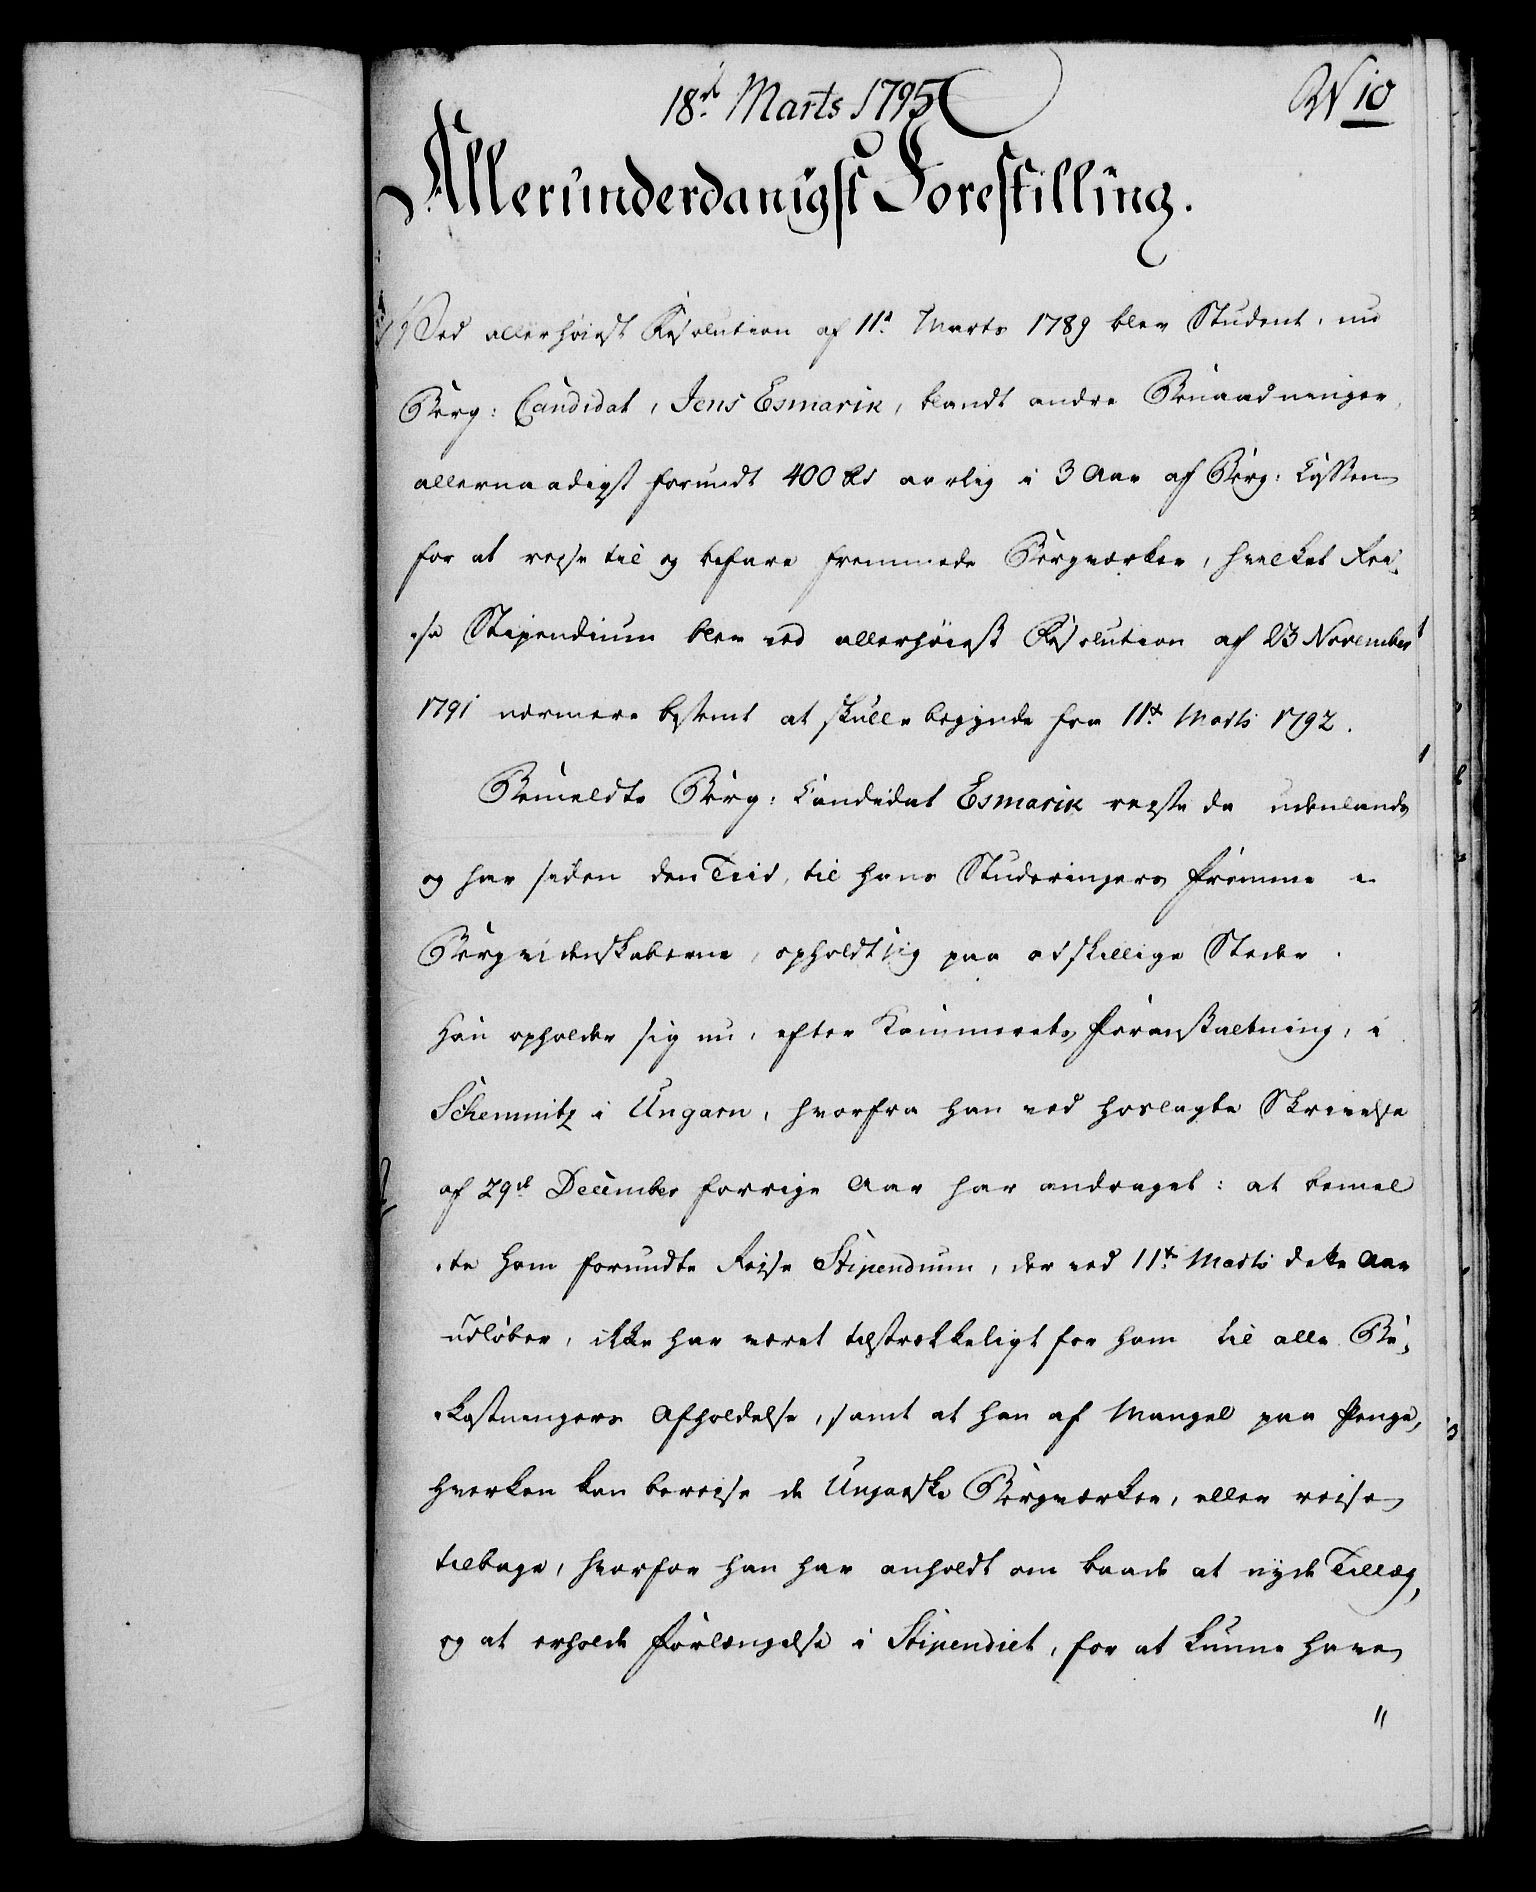 18de Marts 1795
N 10
Allerunderdanigst Forestilling.
Ved allerhøiest Resolution af 11te Marts 1789 blev Student, nu
Berg: Candidat, Jens Esmark, blandt andre Benaadninger,
allernaadigst forundt 400 Rd aarlig i 3 Aar af Berg: Cassen
for at reise til og befare fremmede Bergværker, hvilket Rei-
-se Stipendium blev ved allerhøiest Resolution af 23 November
1791 nærmere bestemt at skulle begynde fra 11te Marts 1792.
Bemeldte Berg: Candidat Esmark reiste da udenlands
og har siden den Tiid, til hans Studeringers Fremme i
Bergvidenskaberne, opholdt sig paa adskillige Steder.
Han opholder sig nu, efter Kammerets Foranstaltning, i
Schemnitz i Ungarn, hvorfra han ved hoslagte Skrivelse
af 29de December forrige Aar har andraget: at bemel
-te ham forundte Reise Stipendium, der ved 11te Marts dette Aar
udløber, ikke har været tilstrækkeligt for ham til alle Be-
-kostningers Afholdelse, samt at han af Mangel paa Penge,
hverken kan bereise de Ungarske Bergværker, eller reise
tilbage, hvorfor han har anholdt om baade at nyde Tillæg,
og at erholde Forlængelse i Stipendiet, for at kunne have
"